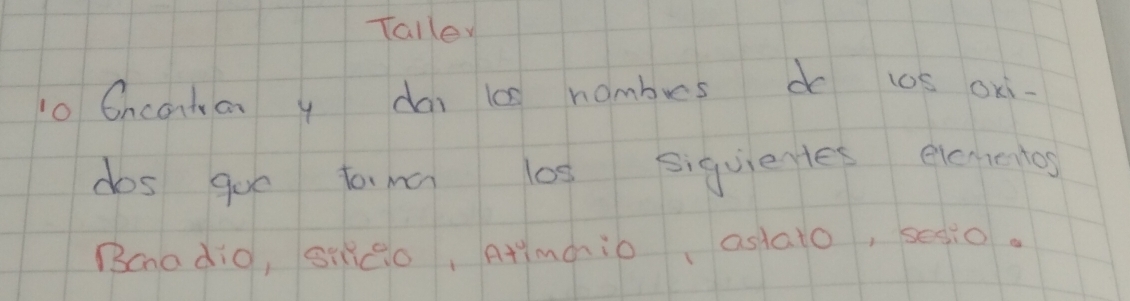 Taller
10 Encontrar y dar los nombres de los oxi-
dos que forman los siguientes elementos
Banadio, silicio, Atimonio, astato, sesio.